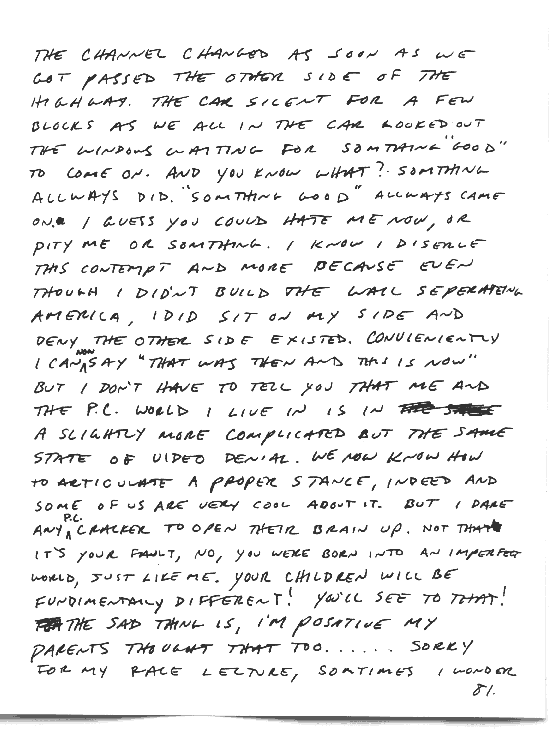 THE CHANNEL CHANGED AS SOON AS WE
GOT PASSED THE OTHER SIDE OF THE
HIGHWAY. THE CAR SILENT FOR A FEW
BLOCKS AS WE ALL IN THE CAR LOOKED OUT
THE WINDOWS WAITING FOR SOMTHING "GOOD"
TO COME ON. AND YOU KNOW WHAT? SOMTHING
ALLWAYS DID. "SOMTHING GOOD" ALLWAYS CAME
ON. I GUESS YOU COULD HATE ME NOW, OR
PITY ME OR SOMTHING. I KNOW I DISERVE
THIS CONTEMPT AND MORE BECAUSE EVEN
THOUGH I DID'NT BUILD THE WALL SEPERATEING
AMERICA, I DID SIT ON MY SIDE AND
DENY THE OTHER SIDE EXISTED. CONVIENIENTLY
I CAN NOW SAY "THAT WAS THEN AND THIS IS NOW"
BUT I DON'T HAVE TO TELL YOU THAT ME AND
THE P.C. WORLD I LIVE IN IS IN
A SLIGHTLY MORE COMPLICATED BUT THE SAME
STATE OF VIDEO DENIAL. WE NOW KNOW HOW
TO ARTICULATE A PROPER STANCE, INDEED AND
SOME OF US ARE VERY COOL ABOUT IT. BUT I DARE
ANY P.C. CRACKER TO OPEN THEIR BRAIN UP. NOT THAT
IT'S YOUR FAULT, NO, YOU WERE BORN INTO AN IMPERFECT
WORLD, JUST LIKE ME. YOUR CHILDREN WILL BE
FUNDIMENTALLY DIFFERENT! YOU'LL SEE TO THAT!
THE SAD THING IS, I'M POSATIVE MY
PARENTS THOUGHT THAT TOO...... SORRY
FOR MY RACE LECTURE, SOMTIMES I WONDER
81.